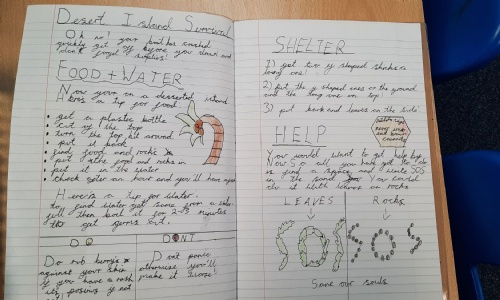 Desert Island Survival
Oh no! your boat has crashed
quickly get off before you drown and
don't forget supplies!
FOOD + WATER
Now your on a desserted island
Heres a tip for food
• get a plastic bottle
• cut of the top
• turn the top bit around
put it back
• find food and rocks
• put the food and rocks in
• put it in the water
• check after an hour and you'll have
Here's a tip for water.
To find water get some from a
then boil it for 2-3 minutes
to get germs out.
DO
DONT
Do rub
against your skin
if you have a rash
its
Dont panic
otherwise you'll
make it worse!
SHELTER
1) get two y shaped sticks
long one!
2) put the y shaped ones in the ground
and the long one on top!
3) put bark and leaves on the side
HELP
Your would want to get help
Now So all you have got to do
is find a space and write SOS
in the sand
do it with leaves or rocks
LEAVES
ROCKS
SOS
SOS
Save our souls